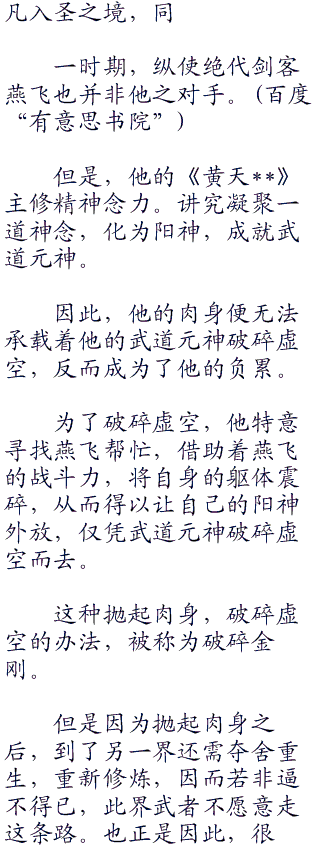 凡入圣之境，同
一时期，纵使绝代剑客
燕飞也并非他之对手。(百度
“有意思书院”)
但是，他的《黄天**》
主修精神念力。讲究凝聚一
道神念，化为阳神，成就武
道元神。
因此，他的肉身便无法
承载着他的武道元神破碎虚
空，反而成为了他的负累。
为了破碎虚空，他特意
寻找燕飞帮忙，借助着燕飞
的战斗力，将自身的躯体震
碎，从而得以让自己的阳神
外放，仅凭武道元神破碎虚
空而去。
这种抛起肉身，破碎虚
空的办法，被称为破碎金
刚。
但是因为抛起肉身之
后，到了另一界还需夺舍重
生，重新修炼，因而若非逼
不得已，此界武者不愿意走
这条路。也正是因此，很